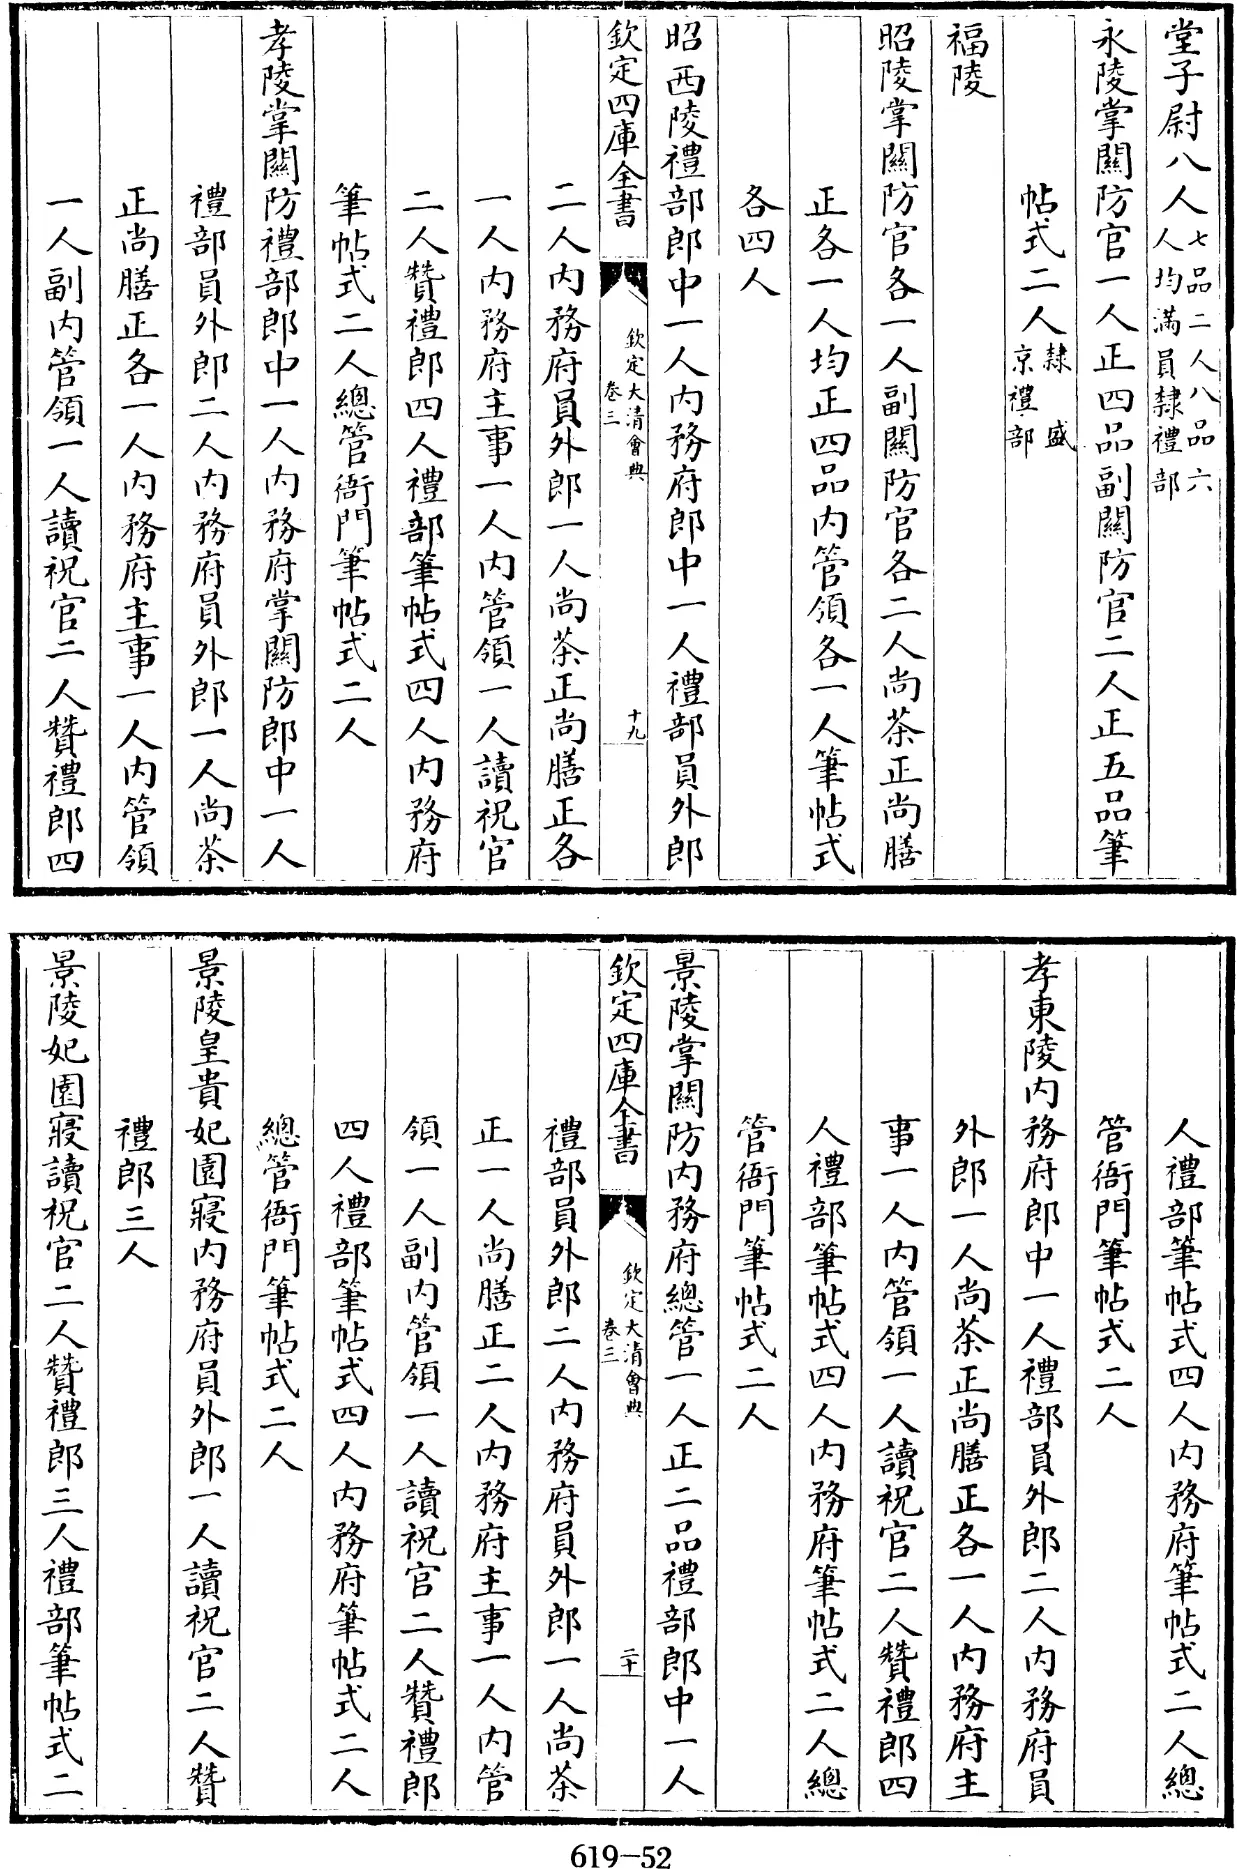 堂子尉八人七品二人八品六人均滿員隸禮部
永陵掌關防官一人正四品副關防官二人正五品筆
帖式二人隸盛京禮部
福陵
昭陵掌關防官各一人副關防官各二人尚茶正尚膳
正各一人均正四品內管領各一人筆帖式
各四人
昭西陵禮部郎中一人內務府郎中一人禮部員外郎
欽定四庫全書
欽定大清會典
卷三
十九
二人內務府員外郎一人尚茶正尚膳正各
一人內務府主事一人內管領一人讀祝官
二人贊禮郎四人禮部筆帖式四人內務府
筆帖式二人總管衙門筆帖式二人
孝陵掌關防禮部郎中一人內務府掌關防郎中一人
禮部員外郎二人內務府員外郎一人尚茶
正尚膳正各一人內務府主事一人內管領
一人副內管領一人讀祝官二人贊禮郎四
人禮部筆帖式四人內務府筆帖式二人總
管衙門筆帖式二人
孝東陵內務府郎中一人禮部員外郎二人內務府員
外郎一人尚茶正尚膳正各一人內務府主
事一人內管領一人讀祝官二人贊禮郎四
人禮部筆帖式四人內務府筆帖式二人總
管衙門筆帖式二人
景陵掌關防內務府總管一人正二品禮部郎中一人
欽定四庫全書
欽定大清會典
卷三
二十
禮部員外郎二人內務府員外郎一人尚茶
正一人尚膳正二人內務府主事一人內管
領一人副內管領一人讀祝官二人贊禮郎
四人禮部筆帖式四人內務府筆帖式二人
總管衙門筆帖式二人
景陵皇貴妃園寢內務府員外郎一人讀祝官二人贊
禮郎三人
景陵妃園寢讀祝官二人贊禮郎三人禮部筆帖式二
619-52